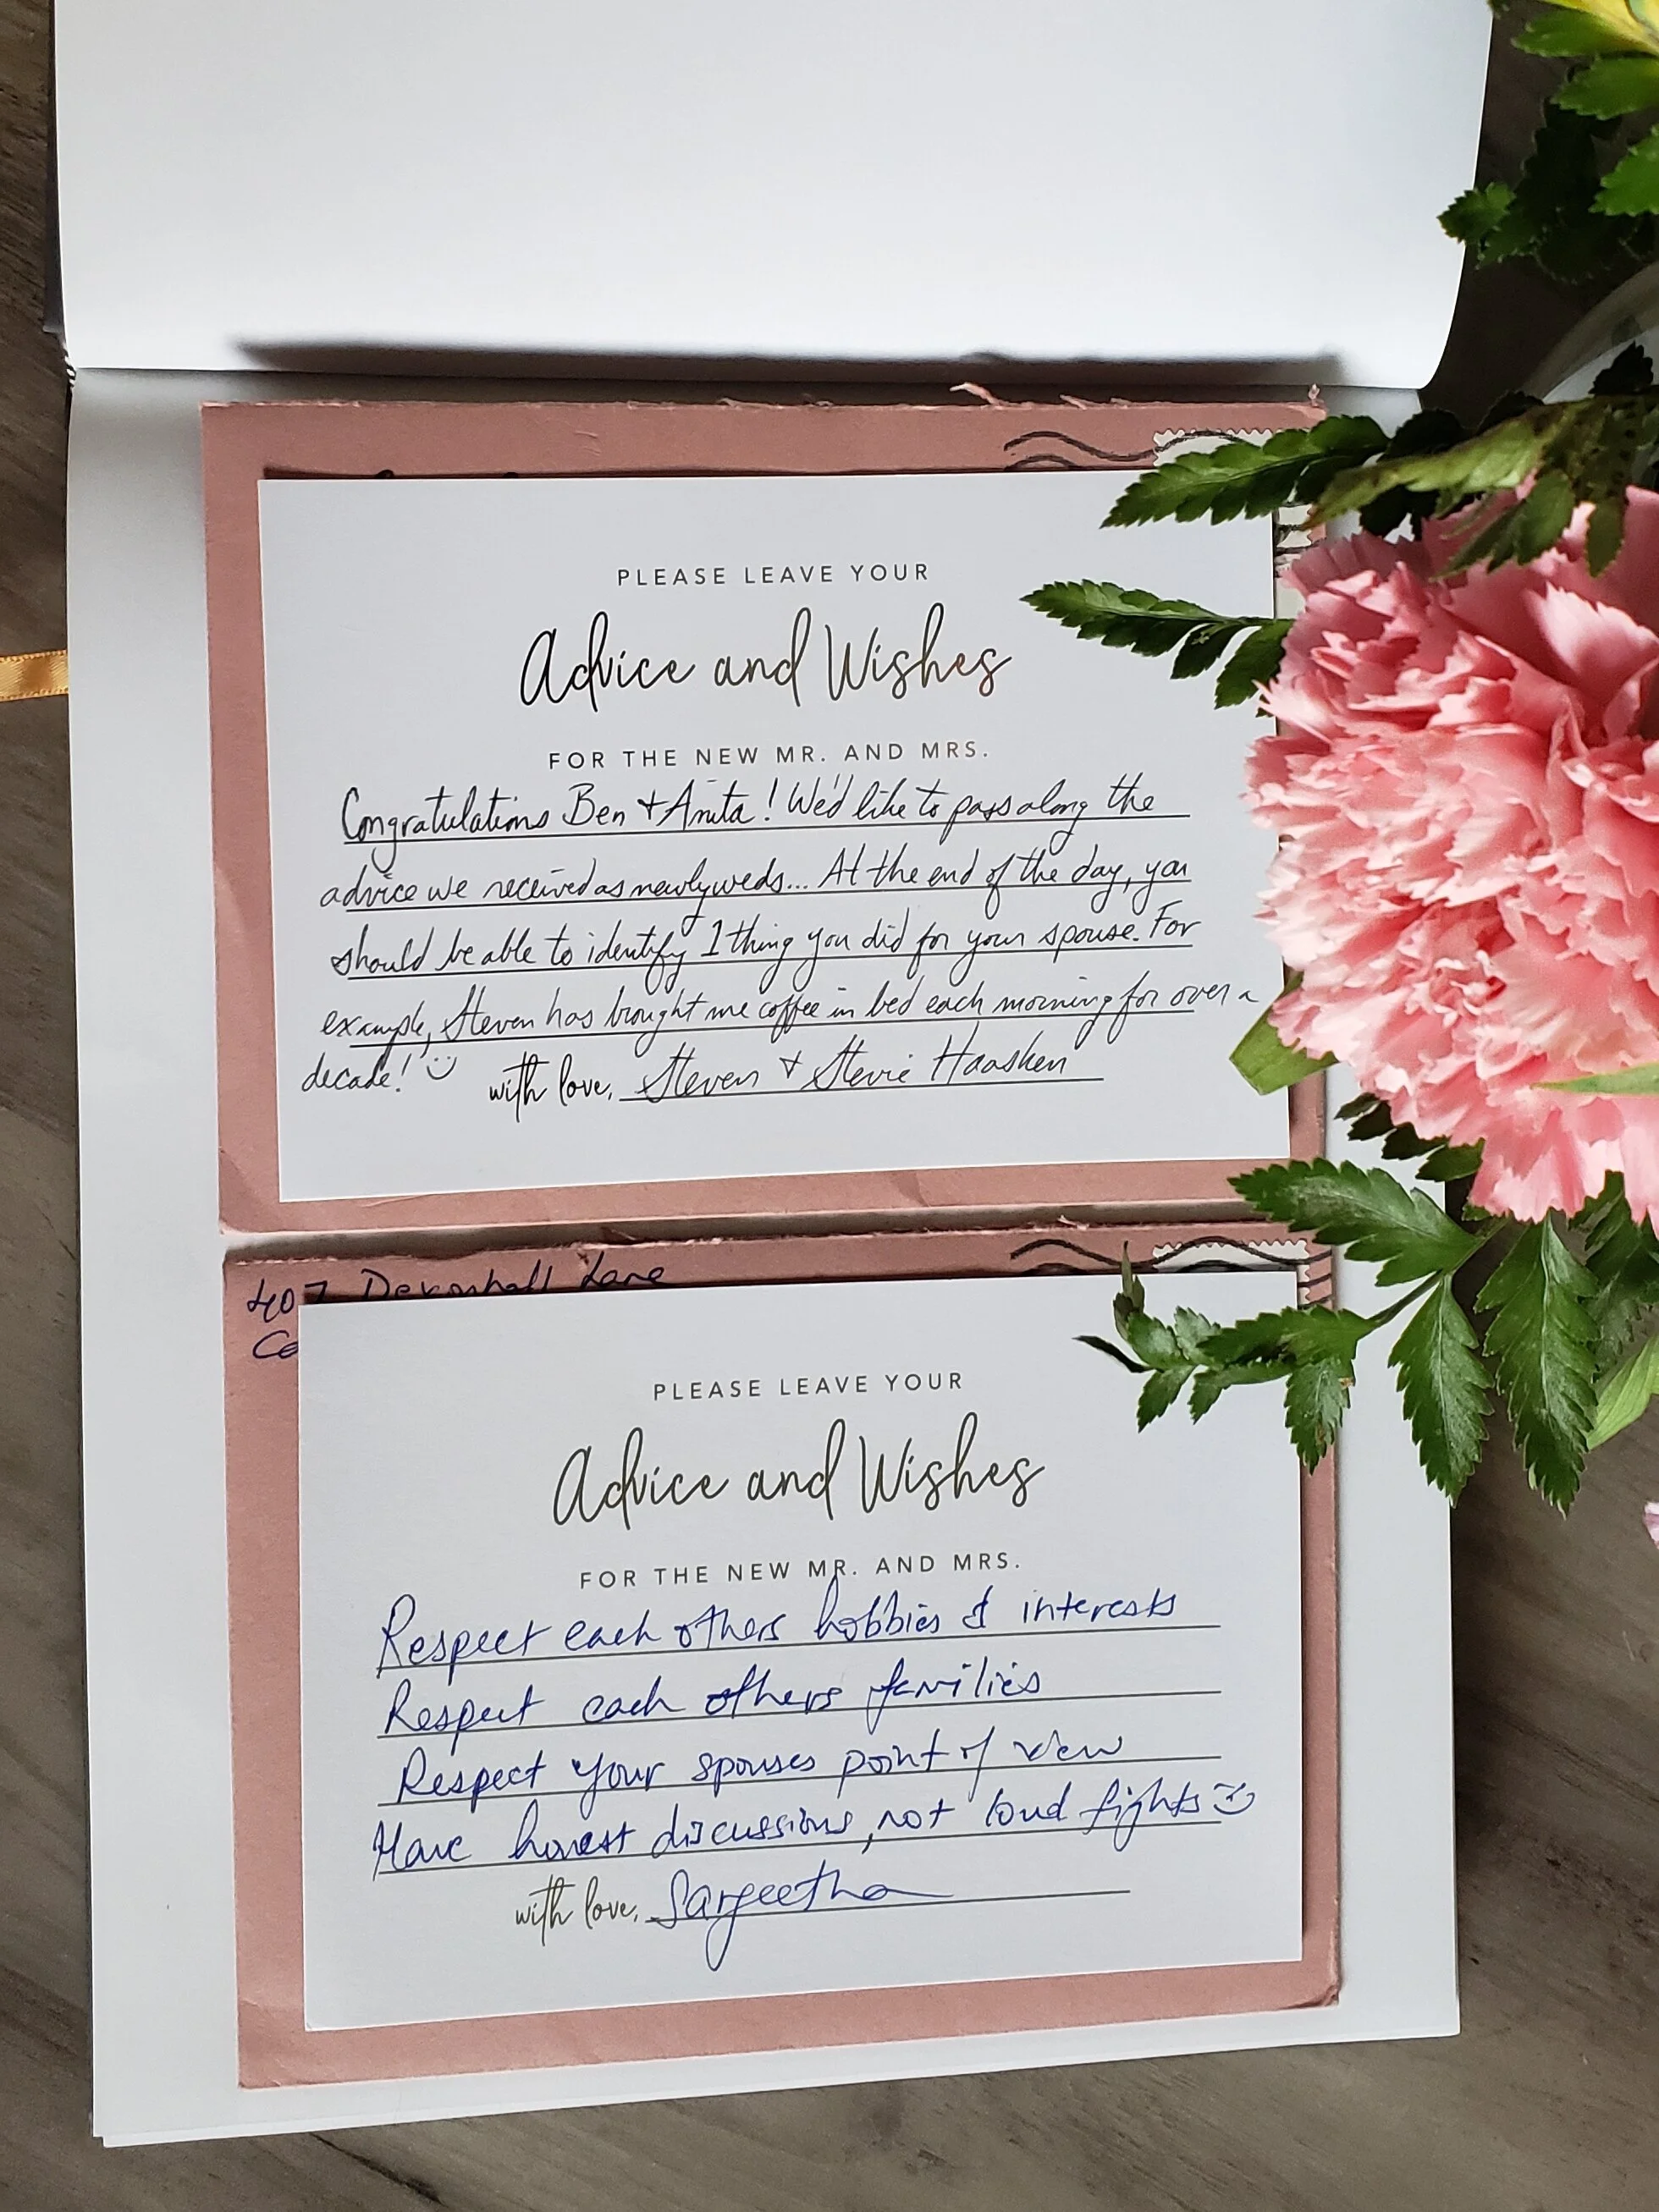 PLEASE LEAVE YOUR
Advice and Wishes
FOR THE NEW MR. AND MRS.
Congratulations Ben + Anita! We'd like to pass along the
advice we received as newlyweds... At the end of the day, you
should be able to identify 1 thing you did for your spouse. For
example, Steven has brought me coffee in bed each morning for over a
decade! with love, Steven + Stevie Haasken
407 Devonhall Lane
Ca
PLEASE LEAVE YOUR
Advice and Wishes
FOR THE NEW MR. AND MRS.
Respect each others hobbies & interests
Respect each others families
Respect your spouses point of view
Have honest discussions, not loud fights
with love,